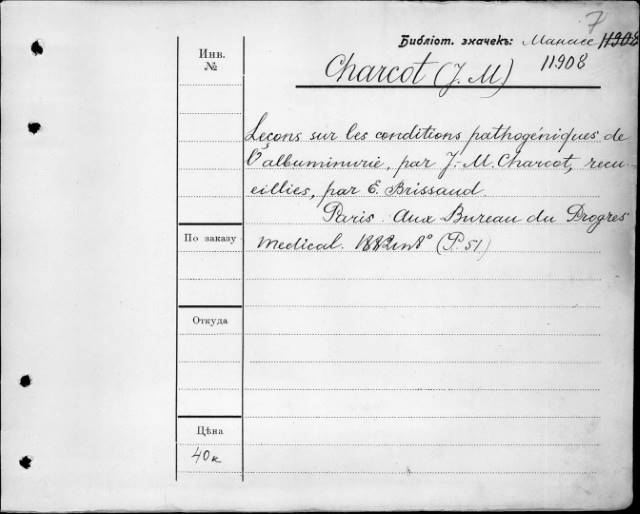 7
Библіот. значекъ: Манассе 11908
11908
Инв.
№
Charcot (J. M)
Leçons sur les conditions pathogéniques de
l'albuminurie, par J.-M. Charcot, recu-
eillies, par E. Brissaud.
Paris. Aux Bureau du Progres
medical. 1882 in 8° (P. 51)
По заказу
Откуда
Цѣна
40к